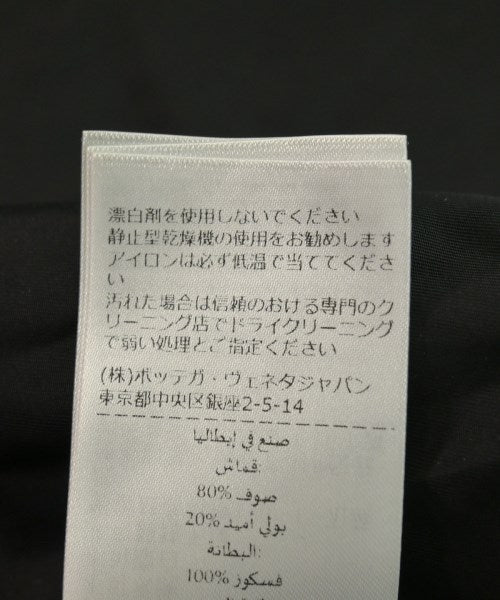 漂白剤を使用しないでください
静止型乾燥機の使用をお勧めします
アイロンは必ず低温で当ててくださ
い
汚れた場合は信頼のおける専門のク
リーニング店でドライクリーニング
で弱い処理とご指定ください
(株)ボッテガ・ヴェネタジャパン
東京都中央区銀座2-5-14
صنع في إيطاليا
قماش:
صوف %80
بولي أميد %20
البطانة:
فسكوز %100